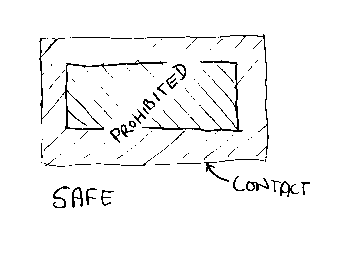 PROHIBITED
SAFE
CONTACT